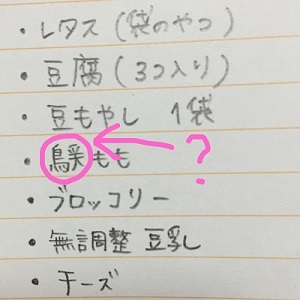 ・レタス(袋のやつ)
・豆腐(3コ入り)
・豆もやし 1袋
・もも ?
・ブロッコリー
・無調整 豆乳
・チーズ